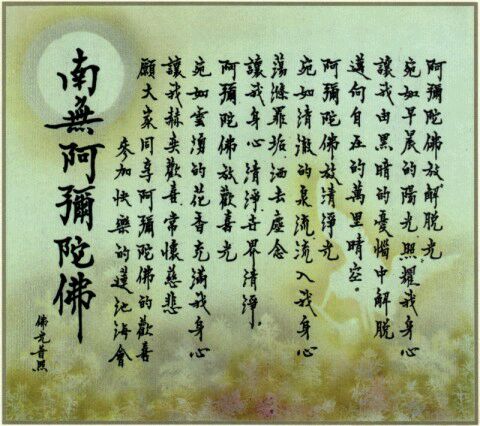 阿彌陀佛放解脱光
宛如早晨的陽光，照耀我身心
讓我由黑暗的憂惱中解脱
邁向自在的萬里晴空。
阿彌陀佛放清淨光
宛如清澈的泉流，流入我身心
蕩滌罪垢，洒去塵念
讓我身心清淨，世界清淨。
阿彌陀佛放歡喜光
宛如雲湧的花香充滿我身心
讓我赫奕歡喜常懷慈悲
願大家同享阿彌陀佛的歡喜
參加快樂的蓮池海會
南無阿彌陀佛
佛光普照